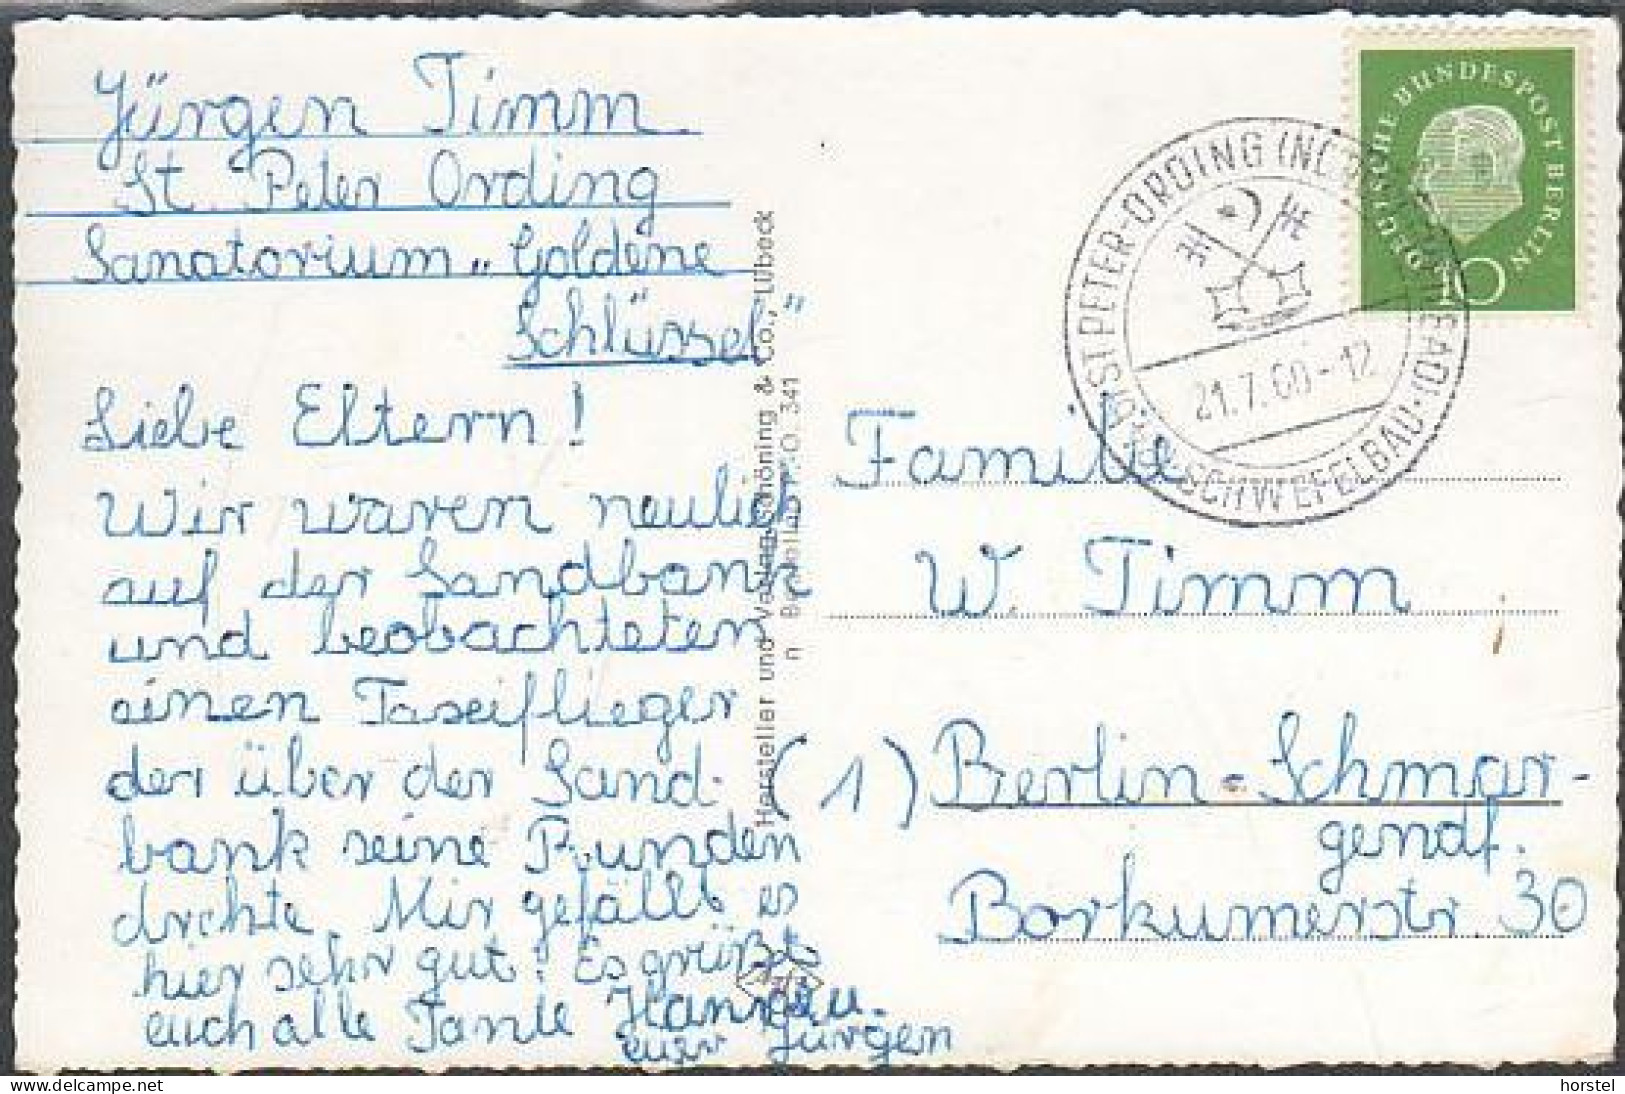 Jürgen Timm
St. Peter Ording
Sanatorium „Goldene
Schlüssel"
Liebe Eltern!
Wir waren neulich
auf der Sandbank
und beobachteten
einen Taxeiflieger
der über der Sand-
bank seine Runden
drehte. Mir gefällt es
hier sehr gut! Es grüßt
euch alle Tante Hanne u.
euer Jürgen
Hersteller und Verlag Schöning & Co., Lübeck
341
DEUTSCHE BUNDESPOST BERLIN
10
ST PETER-ORDING
SCHWEFELBAD
21.7.60-12
Familie
W. Timm
(1) Berlin-Schmar-
gendf.
Borkumerstr. 30
horstel